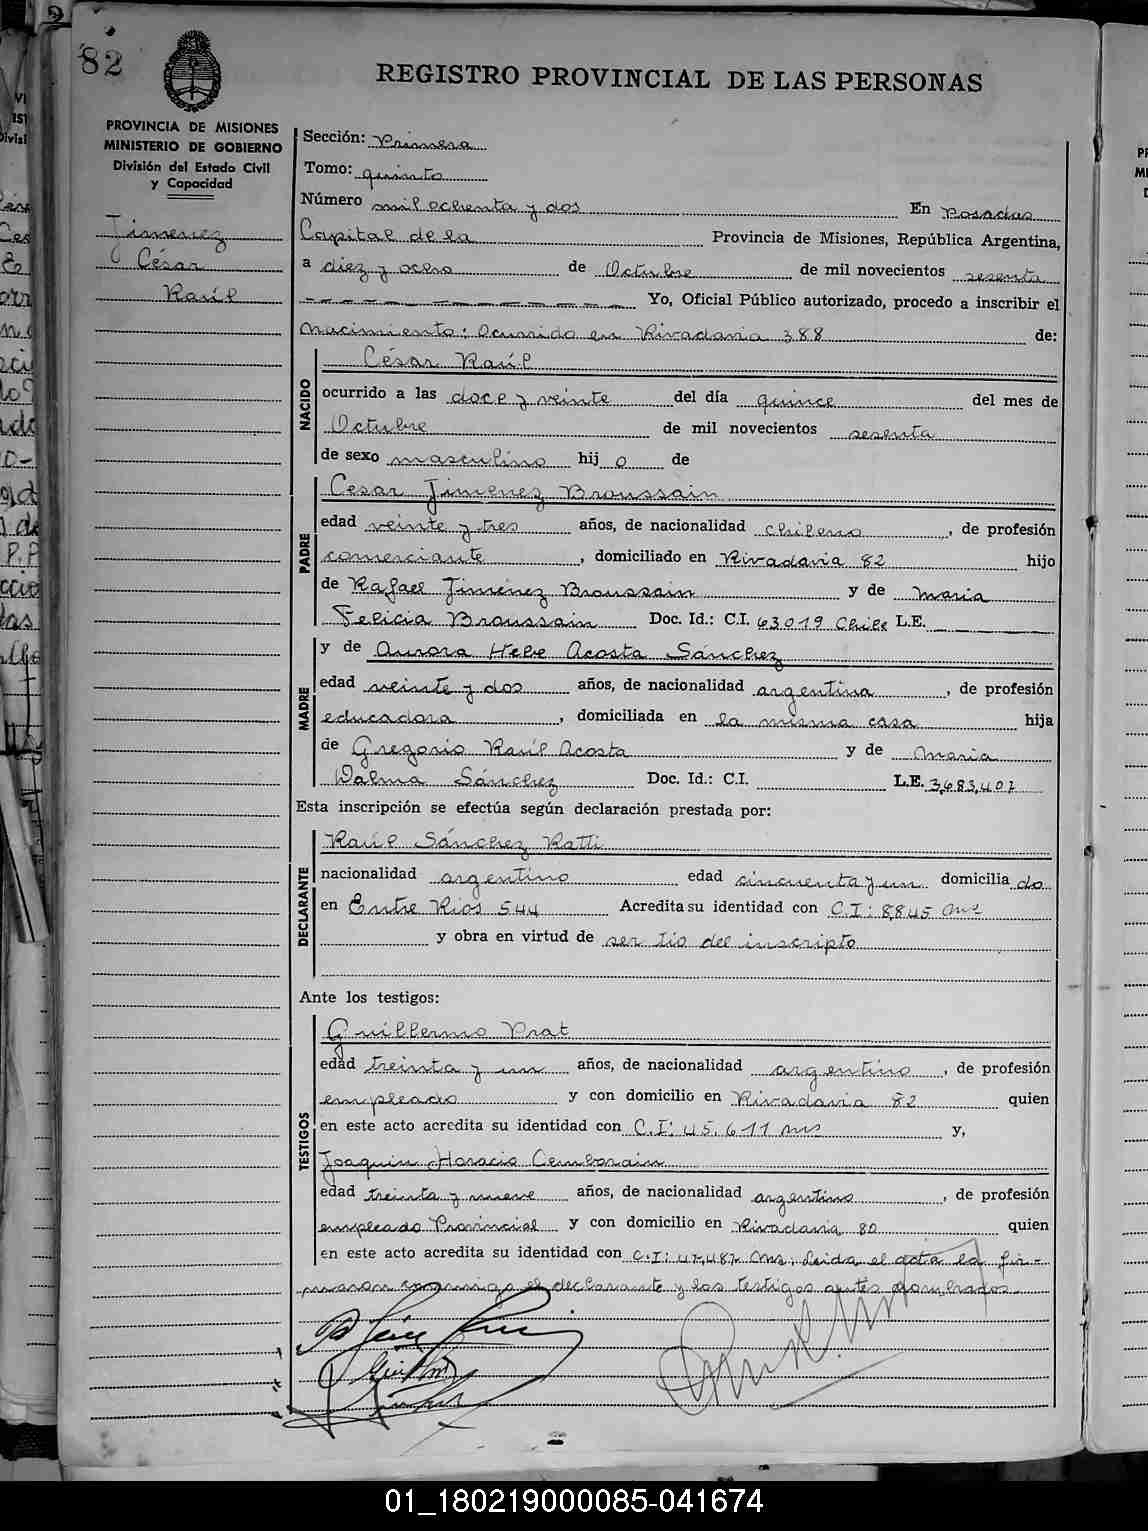 82
REGISTRO PROVINCIAL DE LAS PERSONAS
PROVINCIA DE MISIONES
MINISTERIO DE GOBIERNO
División del Estado Civil
y Capacidad
Jimenez
César
Raúl
Sección: Primera
Tomo: quinto
Número mil ochenta y dos En Posadas
Capital de la Provincia de Misiones, República Argentina,
a diez y ocho de Octubre de mil novecientos sesenta
Yo, Oficial Público autorizado, procedo a inscribir el
Nacimiento: Ocurrido en Rivadavia 388 de:
NACIDO
César Raúl
ocurrido a las doce y veinte del día quince del mes de
Octubre de mil novecientos sesenta
de sexo masculino hij o de
PADRE
Cesar Jimenez Broussain
edad veinte y tres años, de nacionalidad chileno, de profesión
comerciante, domiciliado en Rivadavia 82 hijo
de Rafael Jimenez Broussain y de Maria
Felicia Broussain Doc. Id.: C.I. 63019 Chile L.E.
MADRE
y de Aurora Hebe Acosta Sánchez
edad veinte y dos años, de nacionalidad argentina, de profesión
educadora, domiciliada en la misma casa hija
de Gregorio Raúl Acosta y de Maria
Dalma Sánchez Doc. Id.: C.I. L.E. 3,683,407
Esta inscripción se efectúa según declaración prestada por:
DECLARANTE
Raúl Sánchez Ratti
nacionalidad argentino edad cincuenta y un domicilia do
en Entre Rios 544 Acredita su identidad con C.I: 8,845 Ms
y obra en virtud de ser tio del inscripto
Ante los testigos:
TESTIGOS
Guillermo Prat
edad treinta y un años, de nacionalidad argentino, de profesión
empleado y con domicilio en Rivadavia 82 quien
en este acto acredita su identidad con C.I: 45.611 Ms y,
Joaquin Horacio Cemborain
edad treinta y nueve años, de nacionalidad argentino, de profesión
empleado Provincial y con domicilio en Rivadavia 80 quien
en este acto acredita su identidad con C.I: 47,487 Ms. Leida el acta la fir-
maron conmigo el declarante y los testigos antes nombrados.
01_180219000085-041674